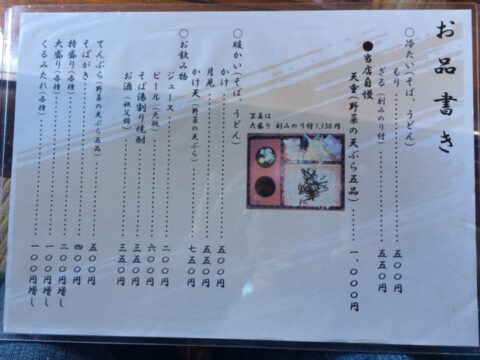 お品書き
○冷たい(そば、うどん)
もり……五〇〇円
ざる(刻みのり付)……五五〇円
●当店自慢
天重(野菜の天ぷら五品)……一、〇〇〇円
写真は
大盛り 刻みのり付1,150円
○暖かい(そば、うどん)
かけ……五〇〇円
月見……五五〇円
かけ天(野菜の天ぷら)……七五〇円
○お飲み物
ジュース……二〇〇円
ビール(大瓶)……六〇〇円
そば湯割り焼酎……三五〇円
お酒(秩父錦)……三五〇円
てんぷら(野菜の天ぷら五品)……五〇〇円
そばがき……四〇〇円
特盛り(各種)……二〇〇円増し
大盛り(各種)……一〇〇円増し
くるみだれ(各種)……一〇〇円増し